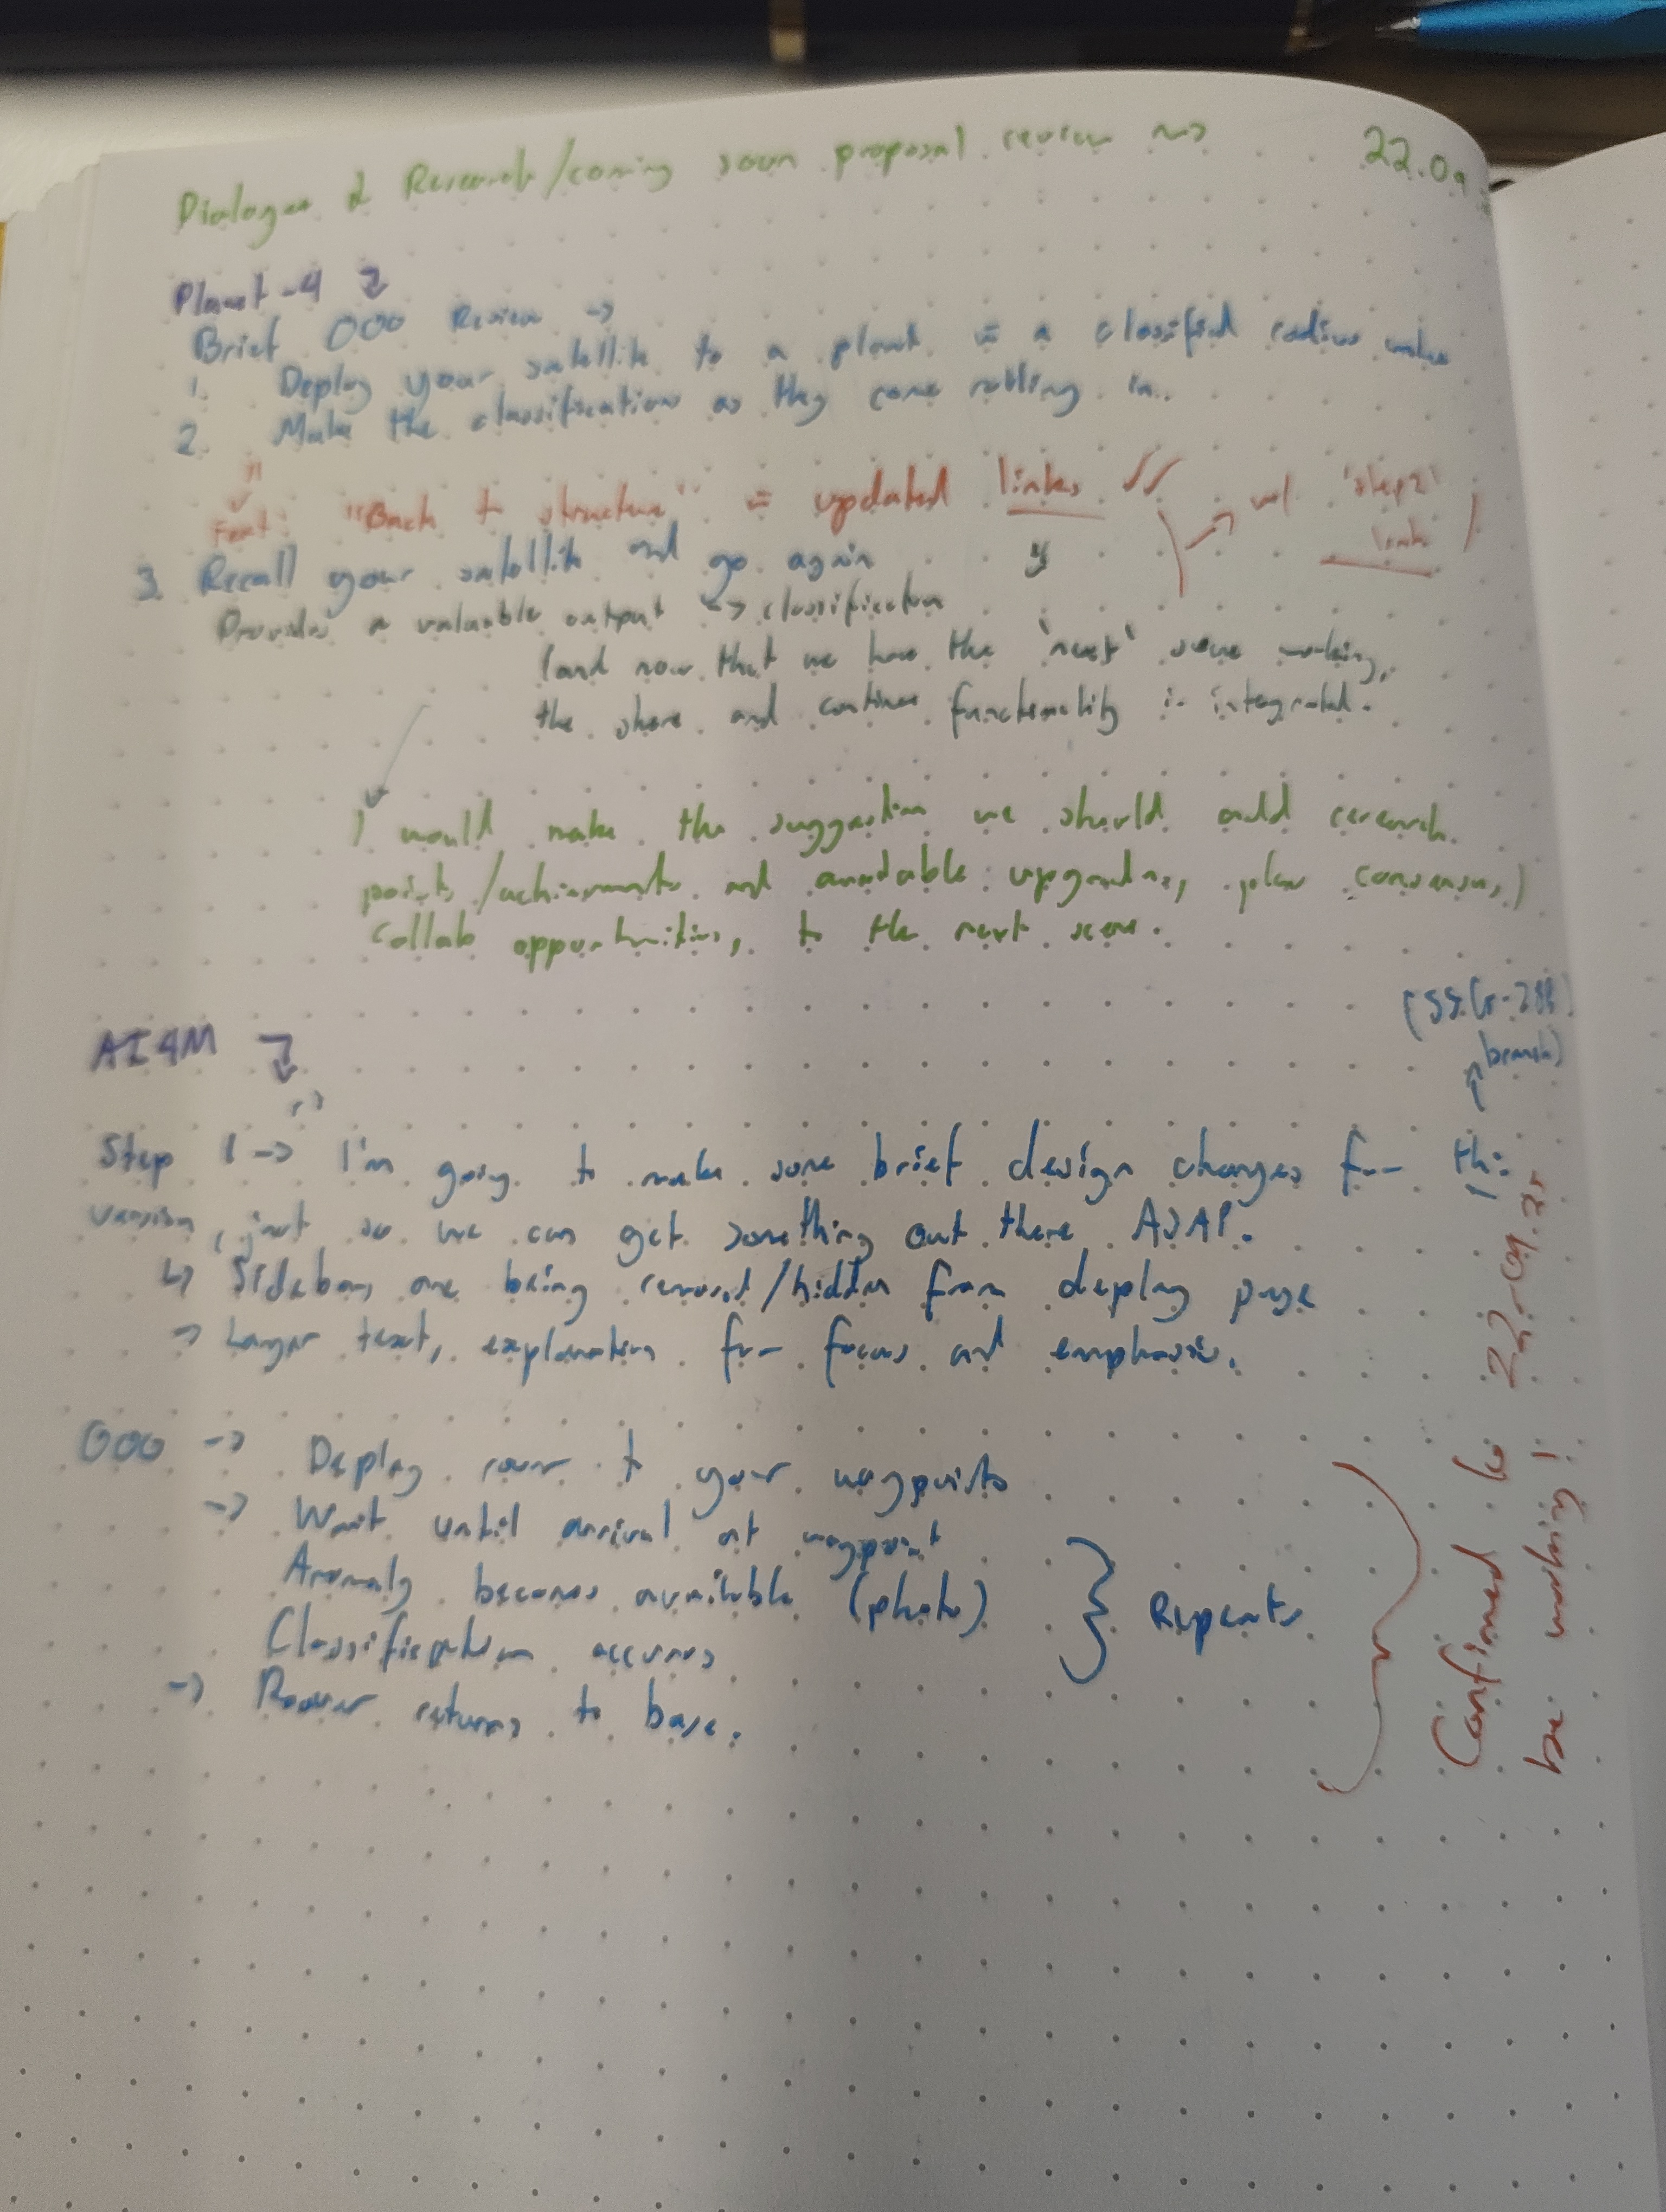 Dialogue & Research/coming soon proposal review ~>
22.09
Planet-4
Brief OOO Review ->
1. Deploy your satellite to a planet = a classified radius value
2. Make the classifications as they come rolling in.
Feat: "Back to structure" = updated links
w/ 'step2' link
3. Recall your satellite and go again
Provides a valuable output -> classification
(and now that we have the 'next' scene working,
the share and continue functionality is integrated.
I would make the suggestion we should add research
points/achievements and available upgrades, consensus,
collab opportunities, to the next scene.
AI4M
branch)
Step 1 -> I'm going to make some brief design changes for this
version, just so we can get something out there ASAP.
↳ Sidebars are being removed/hidden from deploy page
-> Larger text, explanation for focus and emphasis.
OOO -> Deploy rover to your waypoints
-> Wait until arrival at waypoint
Anomaly becomes available (photo)
Classification occurs
} Repeats
-> Rover returns to base.
Confirmed to
be working!
22.09.25